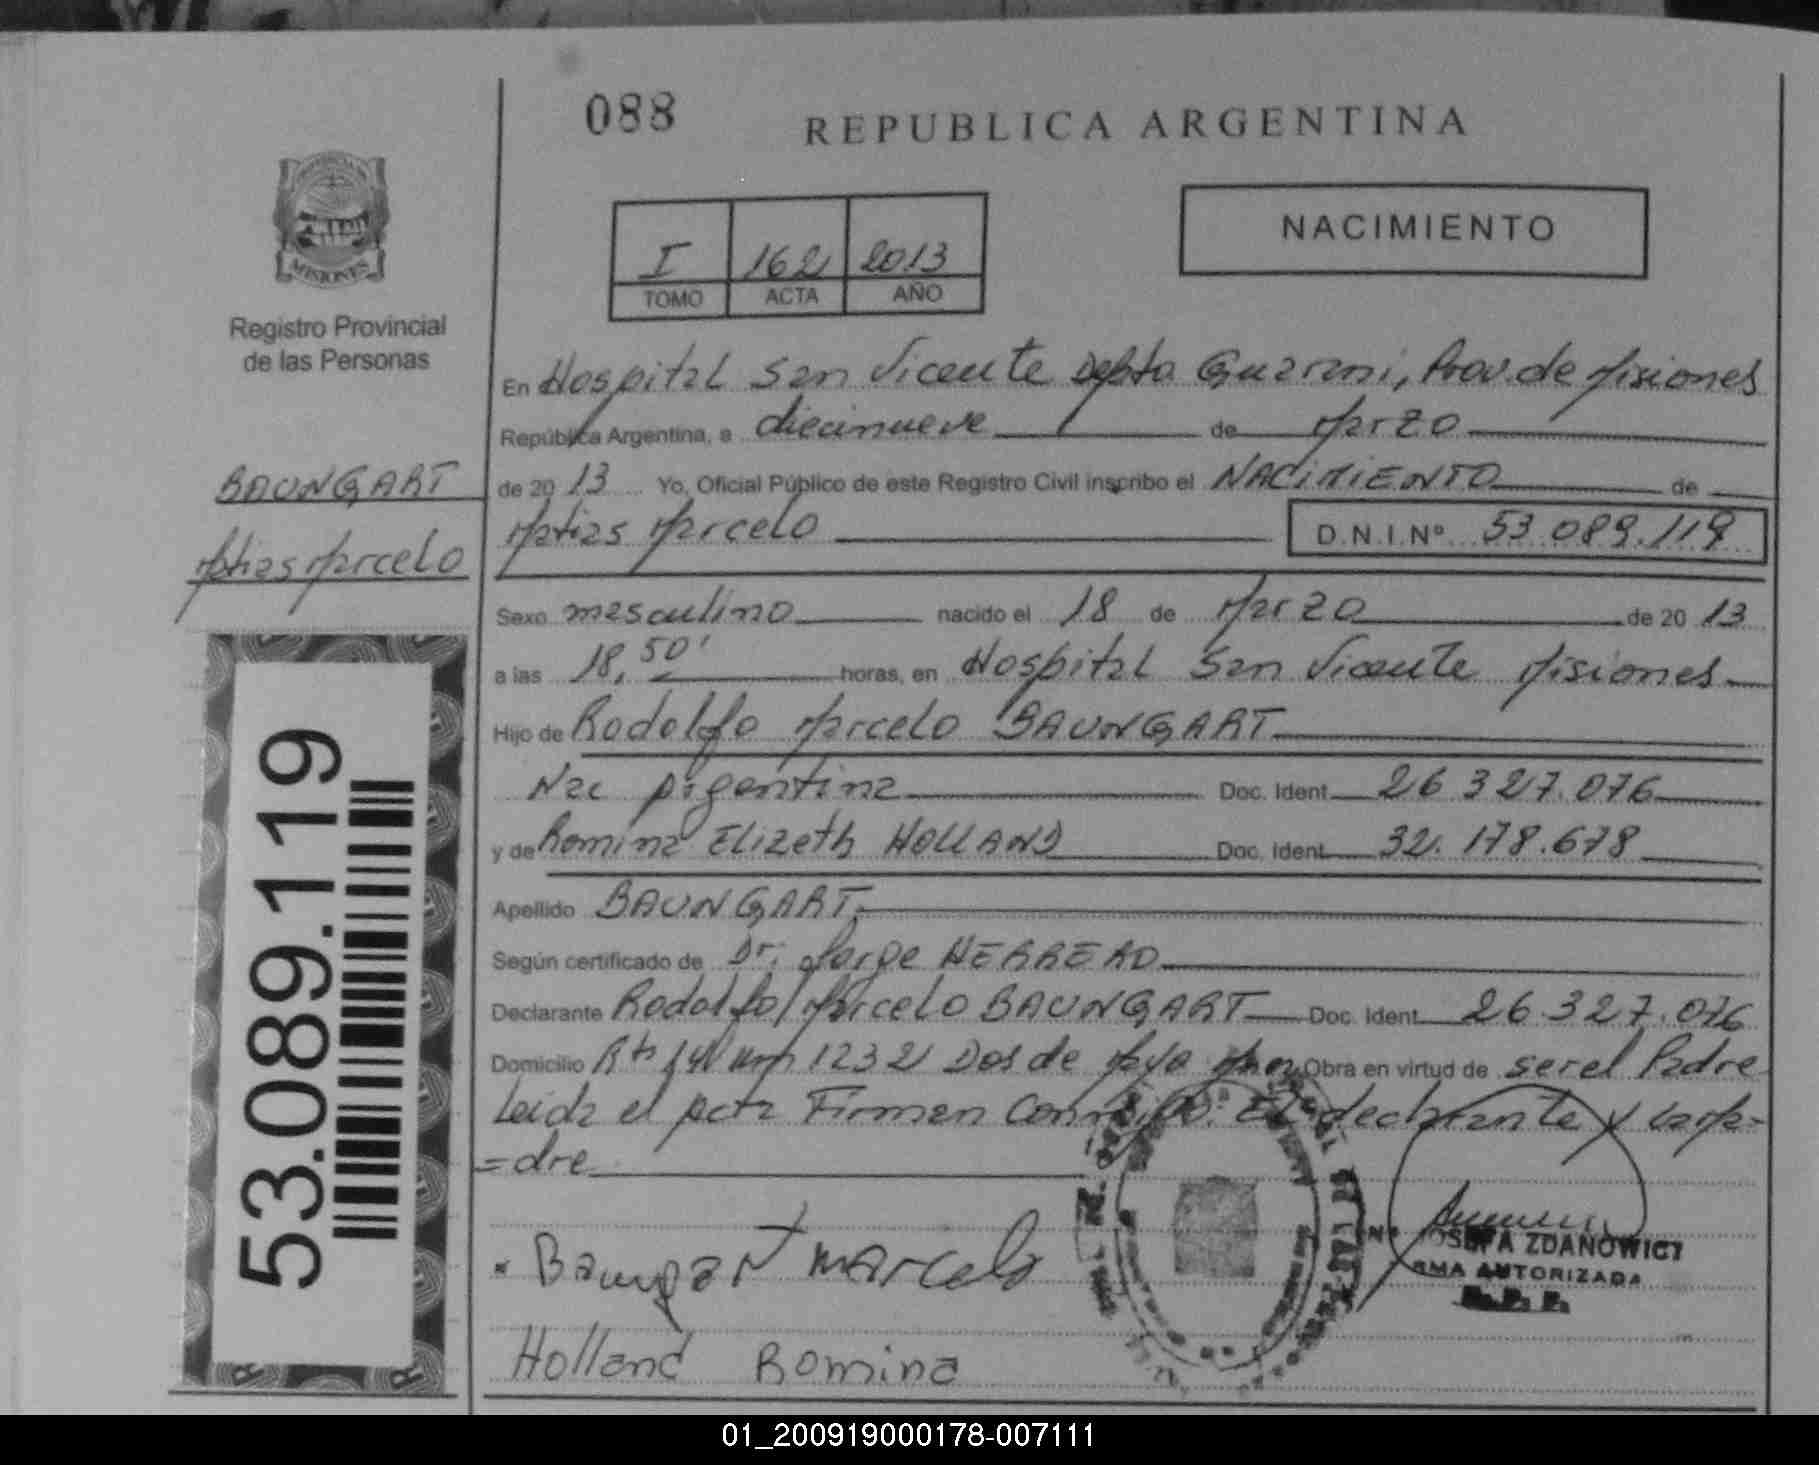 088
REPUBLICA ARGENTINA
MISIONES
Registro Provincial
de las Personas
I 162 2013
TOMO ACTA AÑO
NACIMIENTO
En Hospital San Vicente Depto Guarani, Prov. de Misiones
República Argentina, a diecinueve de Marzo
BAUNGART
de 20 13 Yo, Oficial Público de este Registro Civil inscribo el NACIMIENTO de
Matias Marcelo
Matias Marcelo D.N.I.Nº 53 089.119
Sexo masculino nacido el 18 de Marzo de 20 13
a las 18, 50' horas, en Hospital San Vicente Misiones
Hijo de Rodolfo Marcelo BAUNGART
Nac Argentina Doc. Ident 26 327.076
y de Romina Elizeth HOLLAND Doc. Ident 32.178.678
Apellido BAUNGART
Según certificado de Dr: Jorge HERRERO
Declarante Rodolfo Marcelo BAUNGART Doc. Ident 26.327.076
Domicilio Rta 14 Km 1232 Dos de Mayo Obra en virtud de ser el Padre
Leida el Acta Firman Conmigo: El declarante y La Ma=
=dre
Baungart Marcelo
OSEFA ZDANOWICZ
RMA AUTORIZADA
Holland Romina
53.089.119
01_200919000178-007111